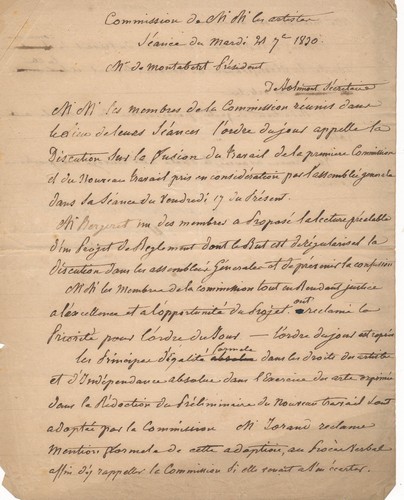 Commission de M. M. les artistes
Séance du mardi 21 7bre 1830
Mr de Montabert Président
Secrétaire
M. M. les membres de la Commission réunis dans
le lieu de leurs séances l'ordre du jour appelle la
Discution sur la fusion du travail de la premiere Commission
et du Nouveau travail pris en considération par l'assemblée générale
dans la Séance du Vendredi 17 du Présent.
Mr Bergeret un des membres a Proposé la lecture préalable
d'un Projet de Reglement dont le But est de régulariser la
Discution dans les assemblées Générales et de prévenir la confusion
M. M. les Membres de la Commission tout en Rendant justice
a l'excellence et a l'opportunité du Projet. ont reclamé la
Priorité pour l'ordre du jour — l'ordre du jour est repris
les Principes d'égalité formels absolue dans les droits des artistes
et d'Indépendance absolue dans l'Exercice des arts exprimés
dans la Rédaction du Préliminaire du Nouveau travail sont
adoptés par la Commission Mr Zorani reclame
Mention formele de cette adoption, au Procès Verbal
affin d'y rappeller la Commission si elle venait a s'en écarter.